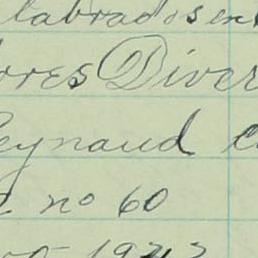 labrados en
ores Diver
eynaud
no 60